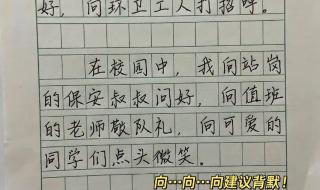 好，向环卫工人打招呼。
在校园中，我向站岗
的保安叔叔问好，向值班
的老师敬队礼，向可爱的
同学们点头微笑。
向…向…向建议背默！